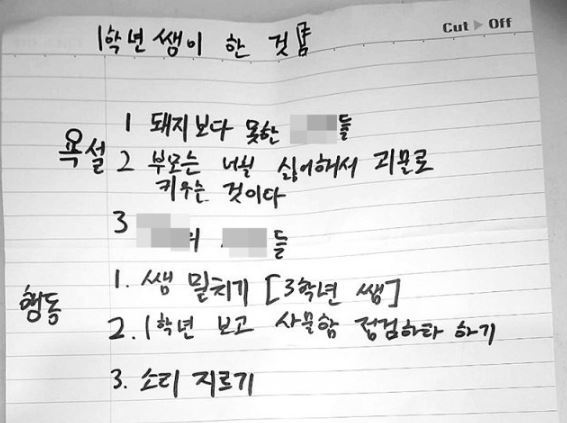 Cut ▶ Off
1학년 쌤이 한 것들
욕설
1 돼지보다 못한 들
2 부모는 너흴 싫어해서 괴물로
키우는 것이다
3 들
행동
1. 쌤 밀치기 [3학년 쌤]
2. 1학년 보고 사물함 점검하라 하기
3. 소리 지르기